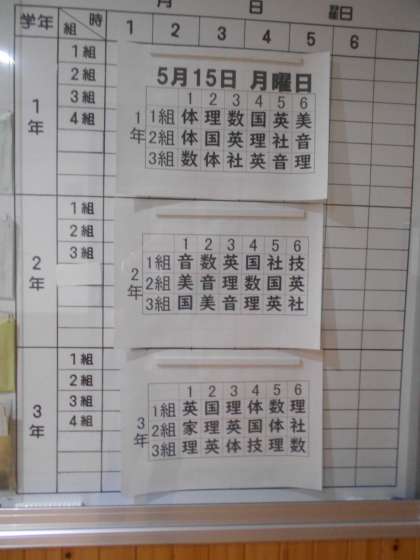 月 日 曜日
学年 時 組 1 2 3 4 5 6
1年
1組
2組
3組
4組
5月15日 月曜日
1 2 3 4 5 6
1年
1組 体 理 数 国 英 美
2組 体 国 英 理 社 音
3組 数 体 社 英 音 理
2年
1組
2組
3組
1 2 3 4 5 6
2年
1組 音 数 英 国 社 技
2組 美 音 理 数 国 英
3組 国 美 音 理 英 社
3年
1組
2組
3組
4組
1 2 3 4 5 6
3年
1組 英 国 理 体 数 理
2組 家 理 英 国 体 社
3組 理 英 体 技 理 数